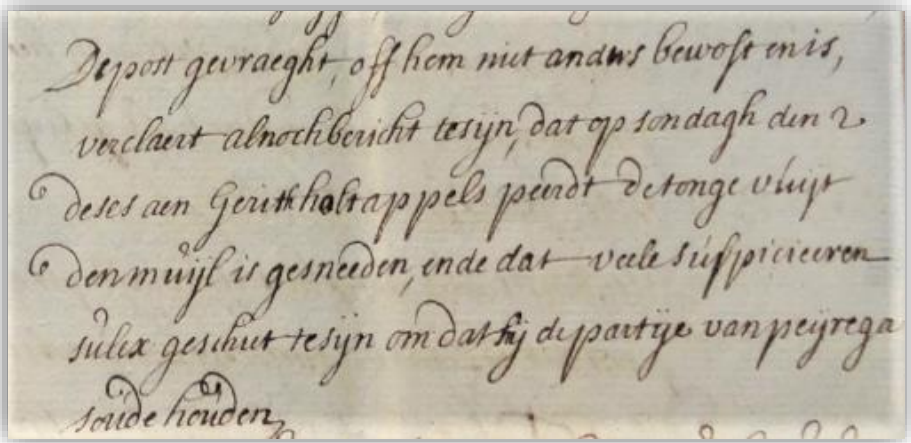 Depost gevraeght, off hem niet anders bewost en is,
verclaert alnoch bericht te sijn, dat op sondagh den 2
deses aen Gerith holtappels peerdt de tonge uluijt
den muijl is gesneeden, ende dat veele suspicieeren
sulex geschut te sijn om dat hij de partije van peijrega
soude houden,